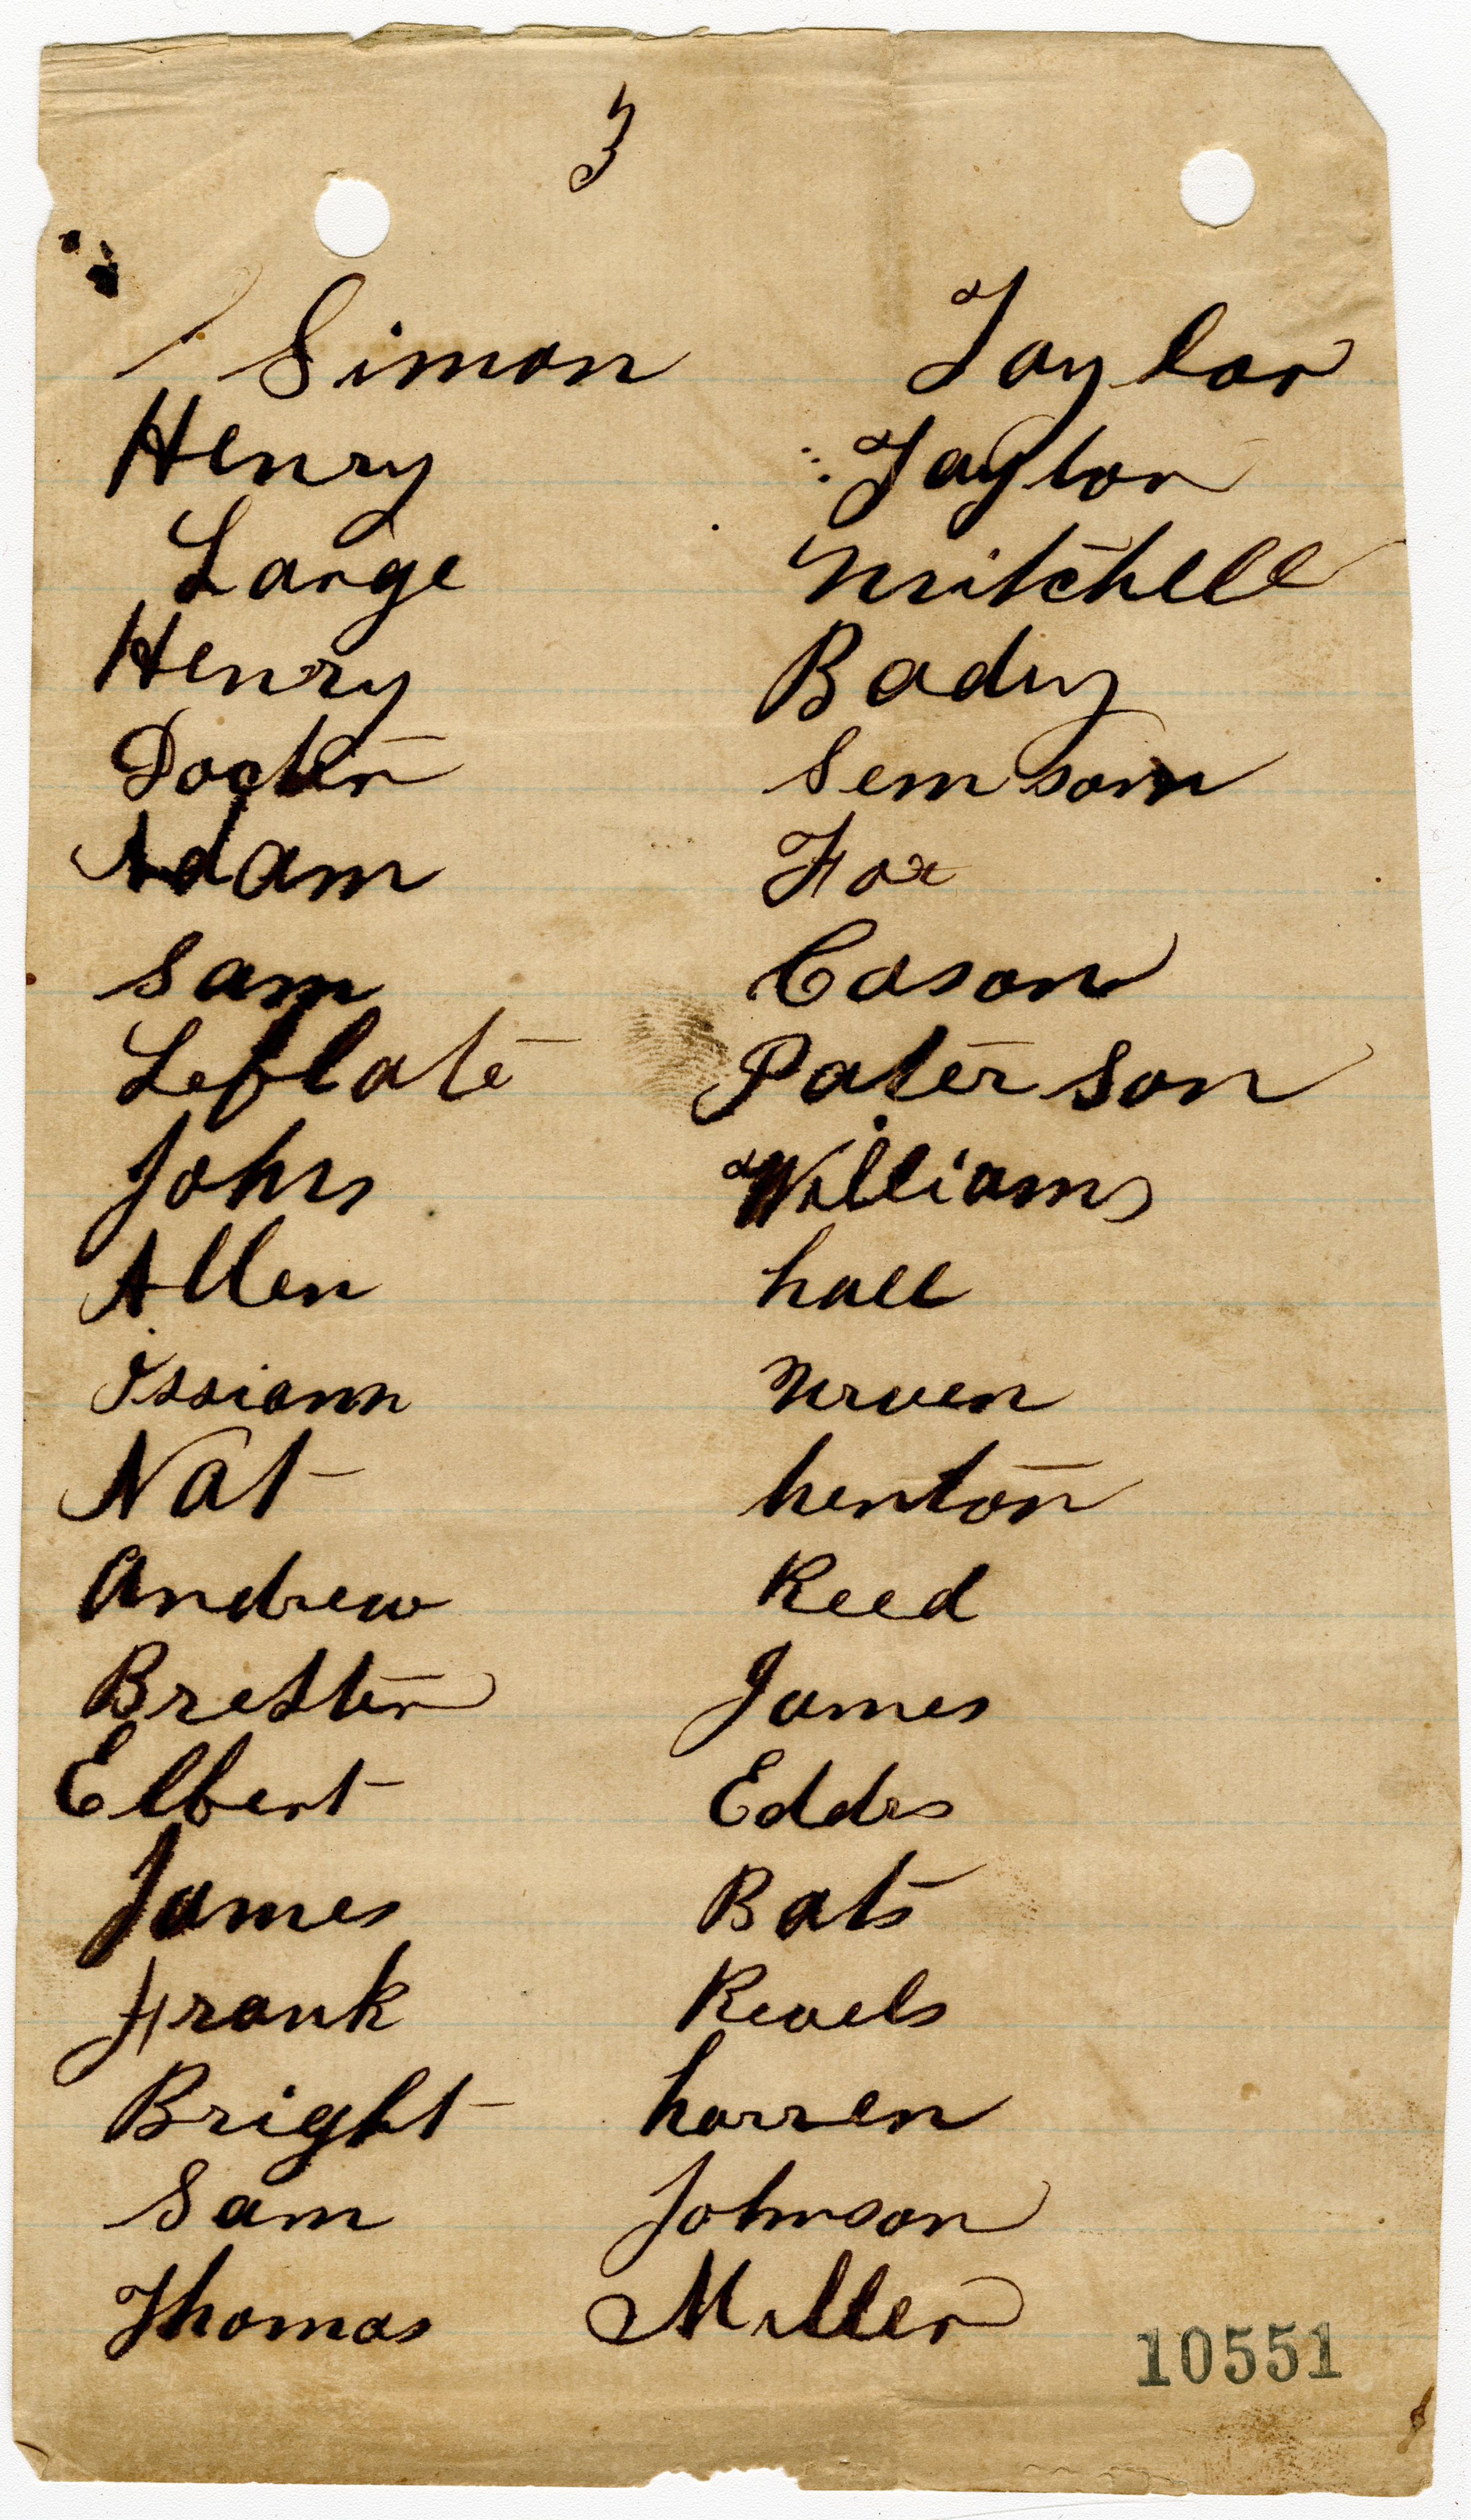 3
Simon Taylor
Henry Taylor
Large Mitchell
Henry Baduy
Docter Semsom
Adam Fox
Sam Cason
Leflate Paterson
John Williams
Allen hall
Issiann
Nat henton
Andrew Reed
Brester James
Elbert Eddes
James Bats
Frank Revels
Bright harren
Sam Johnson
Thomas Miller
10551